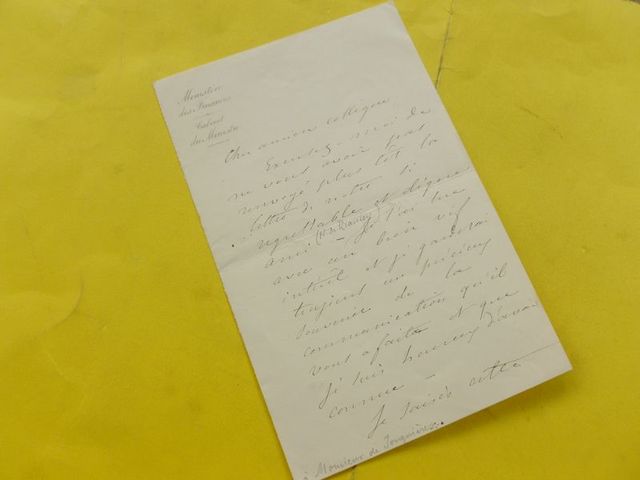 Ministère
des Finances
Cabinet
du Ministre
Cher ancien collègue
Excusez-moi de
ne vous avoir pas
renvoyé plus tôt la
lettre de notre si
regrettable et digne
ami — Je l'ai lue
avec un bien vif
intérêt et je garderai
toujours un précieux
souvenir de la
communication qu'il
vous a faite et que
je suis heureux d'avoir
connue —
Je saisis cette
à Monsieur de